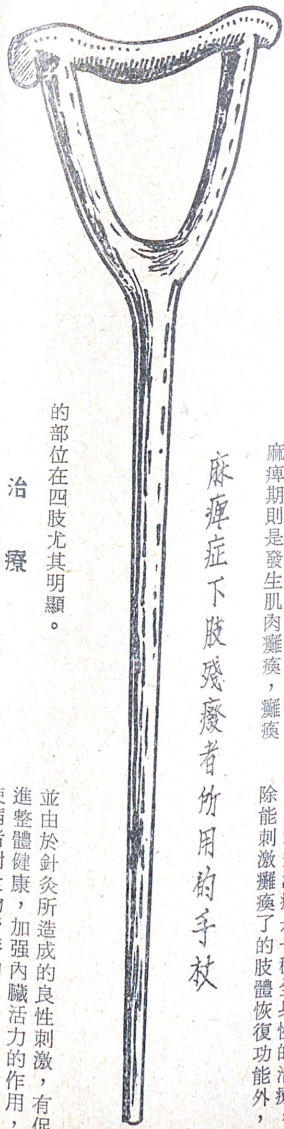 麻痺期則是發生肌肉癱瘓，癱瘓
的部位在四肢尤其明顯。
治療
麻痺症下肢殘廢者所用的手杖
除能刺激癱瘓了的肢體恢復功能外，
並由於針灸所造成的良性刺激，有促
進整體健康，加强內臟活力的作用，